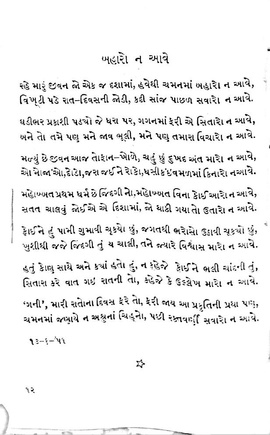 બહારો ન આવે
રહે મારું જીવન જો એક જ દશામાં, હવેથી ચમનમાં બહારો ન આવે,
વિખૂટી પડે રાત-દિવસની જોડી, કદી સાંજ પાછળ સવારો ન આવે,
ઘડીભર પ્રકાશી પડ્યો જે ધરા પર, ગગનમાં ફરી એ સિતારો ન આવે,
બને તો તમે પણ મને જાવ ભૂલી, મને પણ તમારા વિચારો ન આવે.
મળ્યું છે જીવન આજ તોફાન-ખોળે, ચહું છું દુઃખદ અંત મારો ન આવે,
ઓ મોજાંઓ, દોડો, જરા જઈને રોકો, ધસી કદમાં કિનારો ન આવે.
મહોબ્બત પ્રથમ ધર્મ છે જિંદગીનો, મહોબ્બત વિના કોઈ આરો ન આવે,
સતત ચાલવું જોઈએ એ દિશામાં, જો ચાહી ગયા તો ઉતારો ન આવે.
કોઈને હું પામી ગુમાવી ચૂક્યો છું, જગતથી ભરોસો ઉઠાવી ચૂક્યો છું,
ખુશીથી જજે જિંદગી તું ય ચાલી, તને જ્યારે વિશ્વાસ મારો ન આવે.
હતું કોણ સાથે અને ક્યાં હતો હું, ન કહેજે કોઈને ભલી ચાંદની તું,
સિતારા કરે વાત ગઇ રાતની તો, કહેજે કે ઉલ્લેખ મારો ન આવે.
'ગની', મારી રાતોના દિવસ ફરે તો, ફરી જાય આ પ્રકૃતિની પ્રથા પણ,
ચમનમાં જણાયે ન અશ્રુનાં ચિહ્નો, પછી રક્તવર્ણી સવારો ન આવે.
૧૯-૬-'૫૧
૧૨